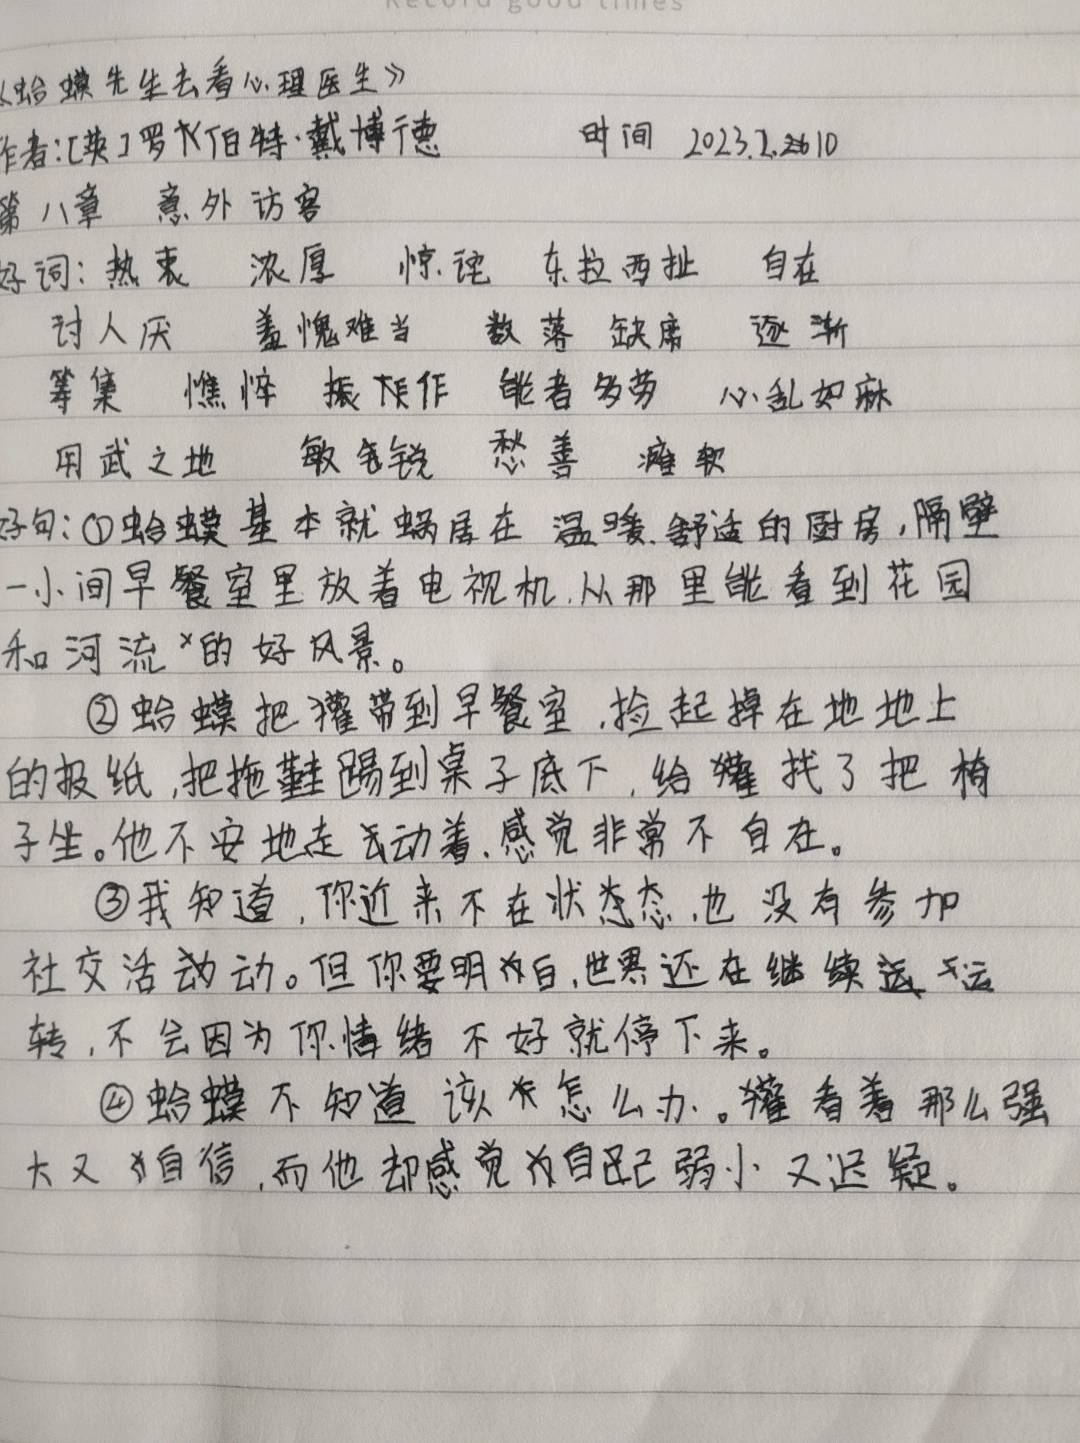 Record good times
《蛤蟆先生去看心理医生》
作者:[英]罗伯特·戴博德 时间 2023.2.10
第八章 意外访客
好词: 热衷 浓厚 惊诧 东拉西扯 自在
讨人厌 羞愧难当 数落 缺席 逐渐
筹集 憔悴 振作 能者多劳 心乱如麻
用武之地 敏锐 愁善 瘫软
好句:①蛤蟆基本就蜗居在温暖舒适的厨房,隔壁
一小间早餐室里放着电视机,从那里能看到花园
和河流的好风景。
②蛤蟆把獾带到早餐室,捡起掉在地地上
的报纸,把拖鞋踢到桌子底下,给獾找了把椅
子坐。他不安地走动着,感觉非常不自在。
③我知道,你近来不在状态,也没有参加
社交活动。但你要明白,世界还在继续运
转,不会因为你情绪不好就停下来。
④蛤蟆不知道该怎么办。獾看着那么强
大又自信,而他却感觉自己弱小又迟疑。